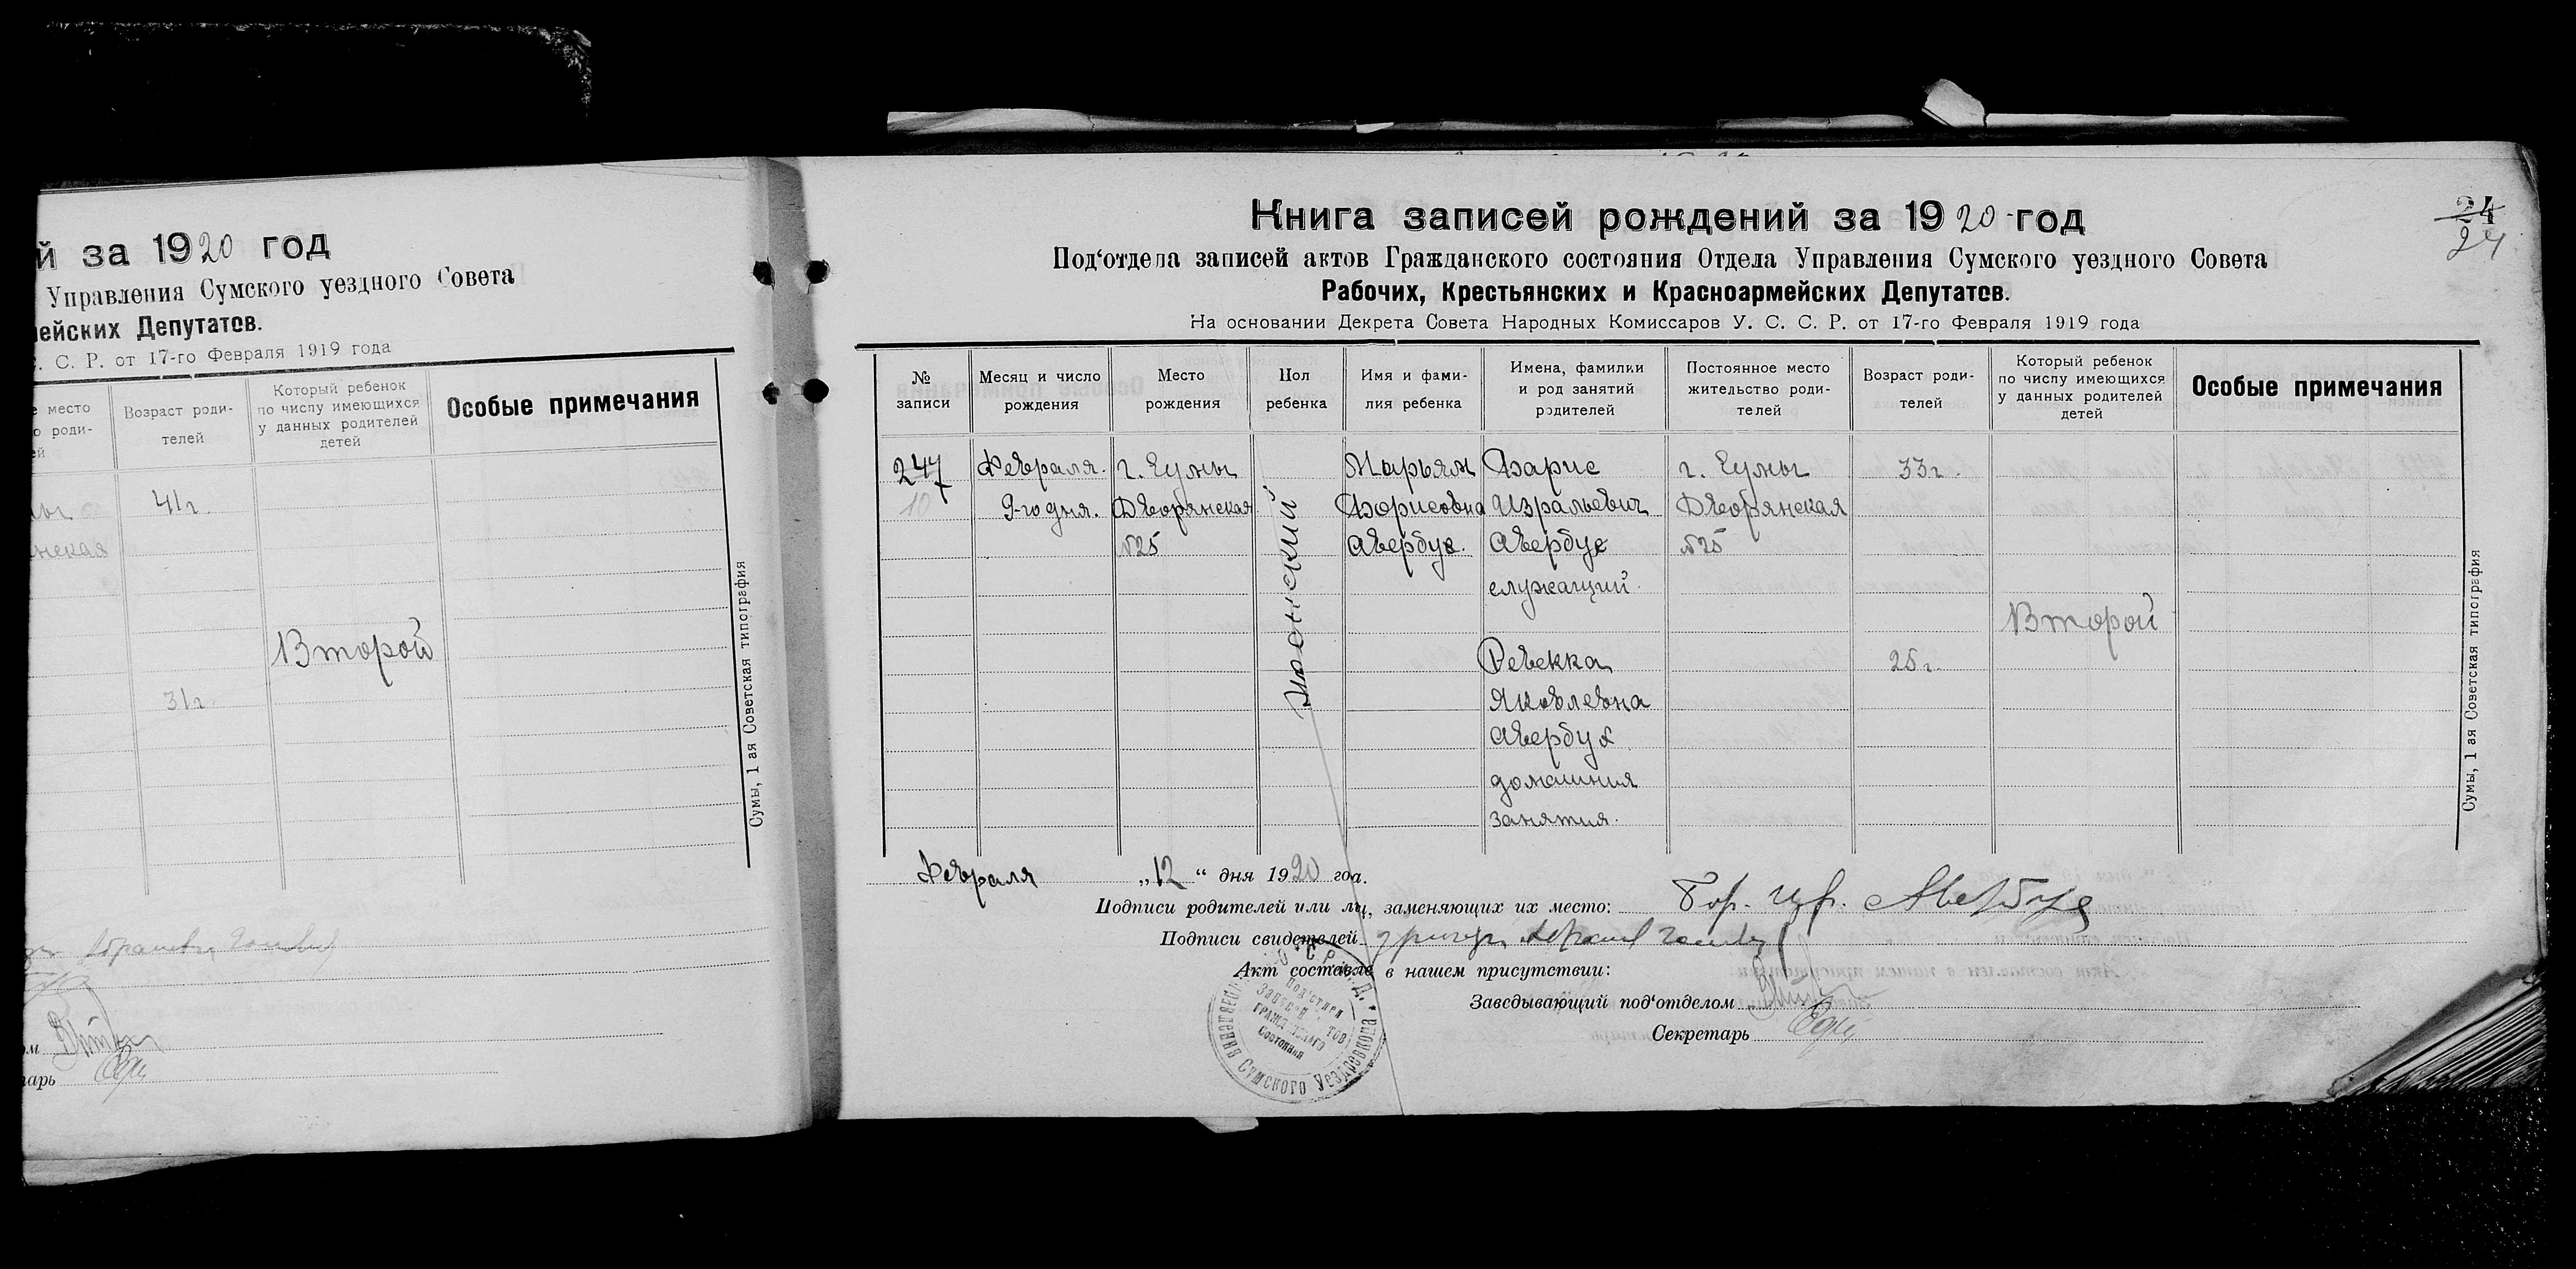 й за 1920 год
Управления Сумского уездного Совета
мейских Депутатов.
С. Р. от 17-го Февраля 1919 года
место
роди-
ей
Возраст роди-
телей
Который ребенок
по числу имеющихся
у данных родителей
детей
Особые примечания
41 г.
нская
Второй
31 г.
Сумы, 1 ая Советская типография
арь
24
24
Книга записей рождений за 1920 год
Под‘отдела записей актов Гражданского состояния Отдела Управления Сумского уездного Совета
Рабочих, Крестьянских и Красноармейских Депутатов.
На основании Декрета Совета Народных Комиссаров У. С. С. Р. от 17-го Февраля 1919 года
№
записи
Месяц и число
рождения
Место
рождения
Пол
ребенка
Имя и фами-
лия ребенка
Имена, фамилии
и род занятий
родителей
Постоянное место
жительство роди-
телей
Возраст роди-
телей
Который ребенок
по числу имеющихся
у данных родителей
детей
Особые примечания
247
10
Февраля
9-го дня.
г. Сумы
Дворянская
№25
женский
Марьям
Борисовна
Авербух.
Борис
Изральевич
Авербух
служащий.
Ревекка
Яковлевна
Авербух
домашния
занятия.
г. Сумы
Дворянская
№25
33 г.
25 г.
Второй
Сумы, 1 ая Советская типография
Февраля „12“ дня 1920 года.
Подписи родителей или лиц, заменяющих их место: Бор. Изр. Авербух
Подписи свидетелей
Акт составле в нашем присутствии:
Заведывающий под‘отделом
Секретарь
Под‘отдел
Записей
Состояния
Сумского Уездревкома